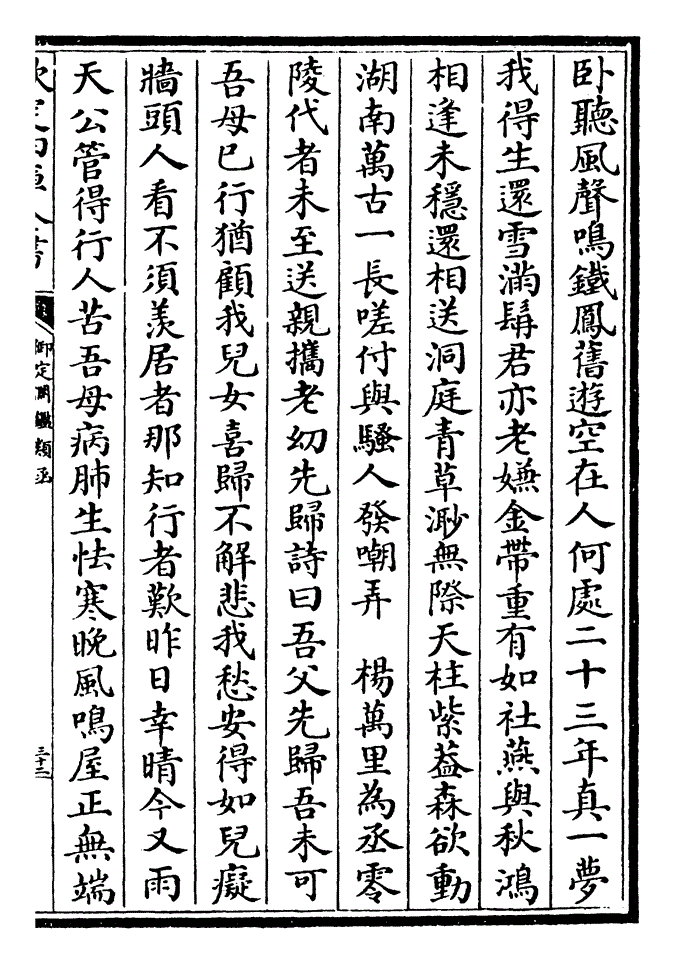 卧聽風聲鳴鐵鳳舊遊空在人何處二十三年真一夢
我得生還雪滿髯君亦老嫌金帶重有如社燕與秋鴻
相逢未穩還相送洞庭青草渺無際天柱紫葢森欲動
湖南萬古一長嗟付與騷人發嘲弄　楊萬里為丞零
陵代者未至送親攜老幼先歸詩曰吾父先歸吾未可
吾母已行猶顧我兒女喜歸不解悲我愁安得如兒癡
牆頭人看不須羨居者那知行者歎昨日幸晴今又雨
天公管得行人苦吾母病肺生怯寒晚風鳴屋正無端
御定淵鑑類函
三十二